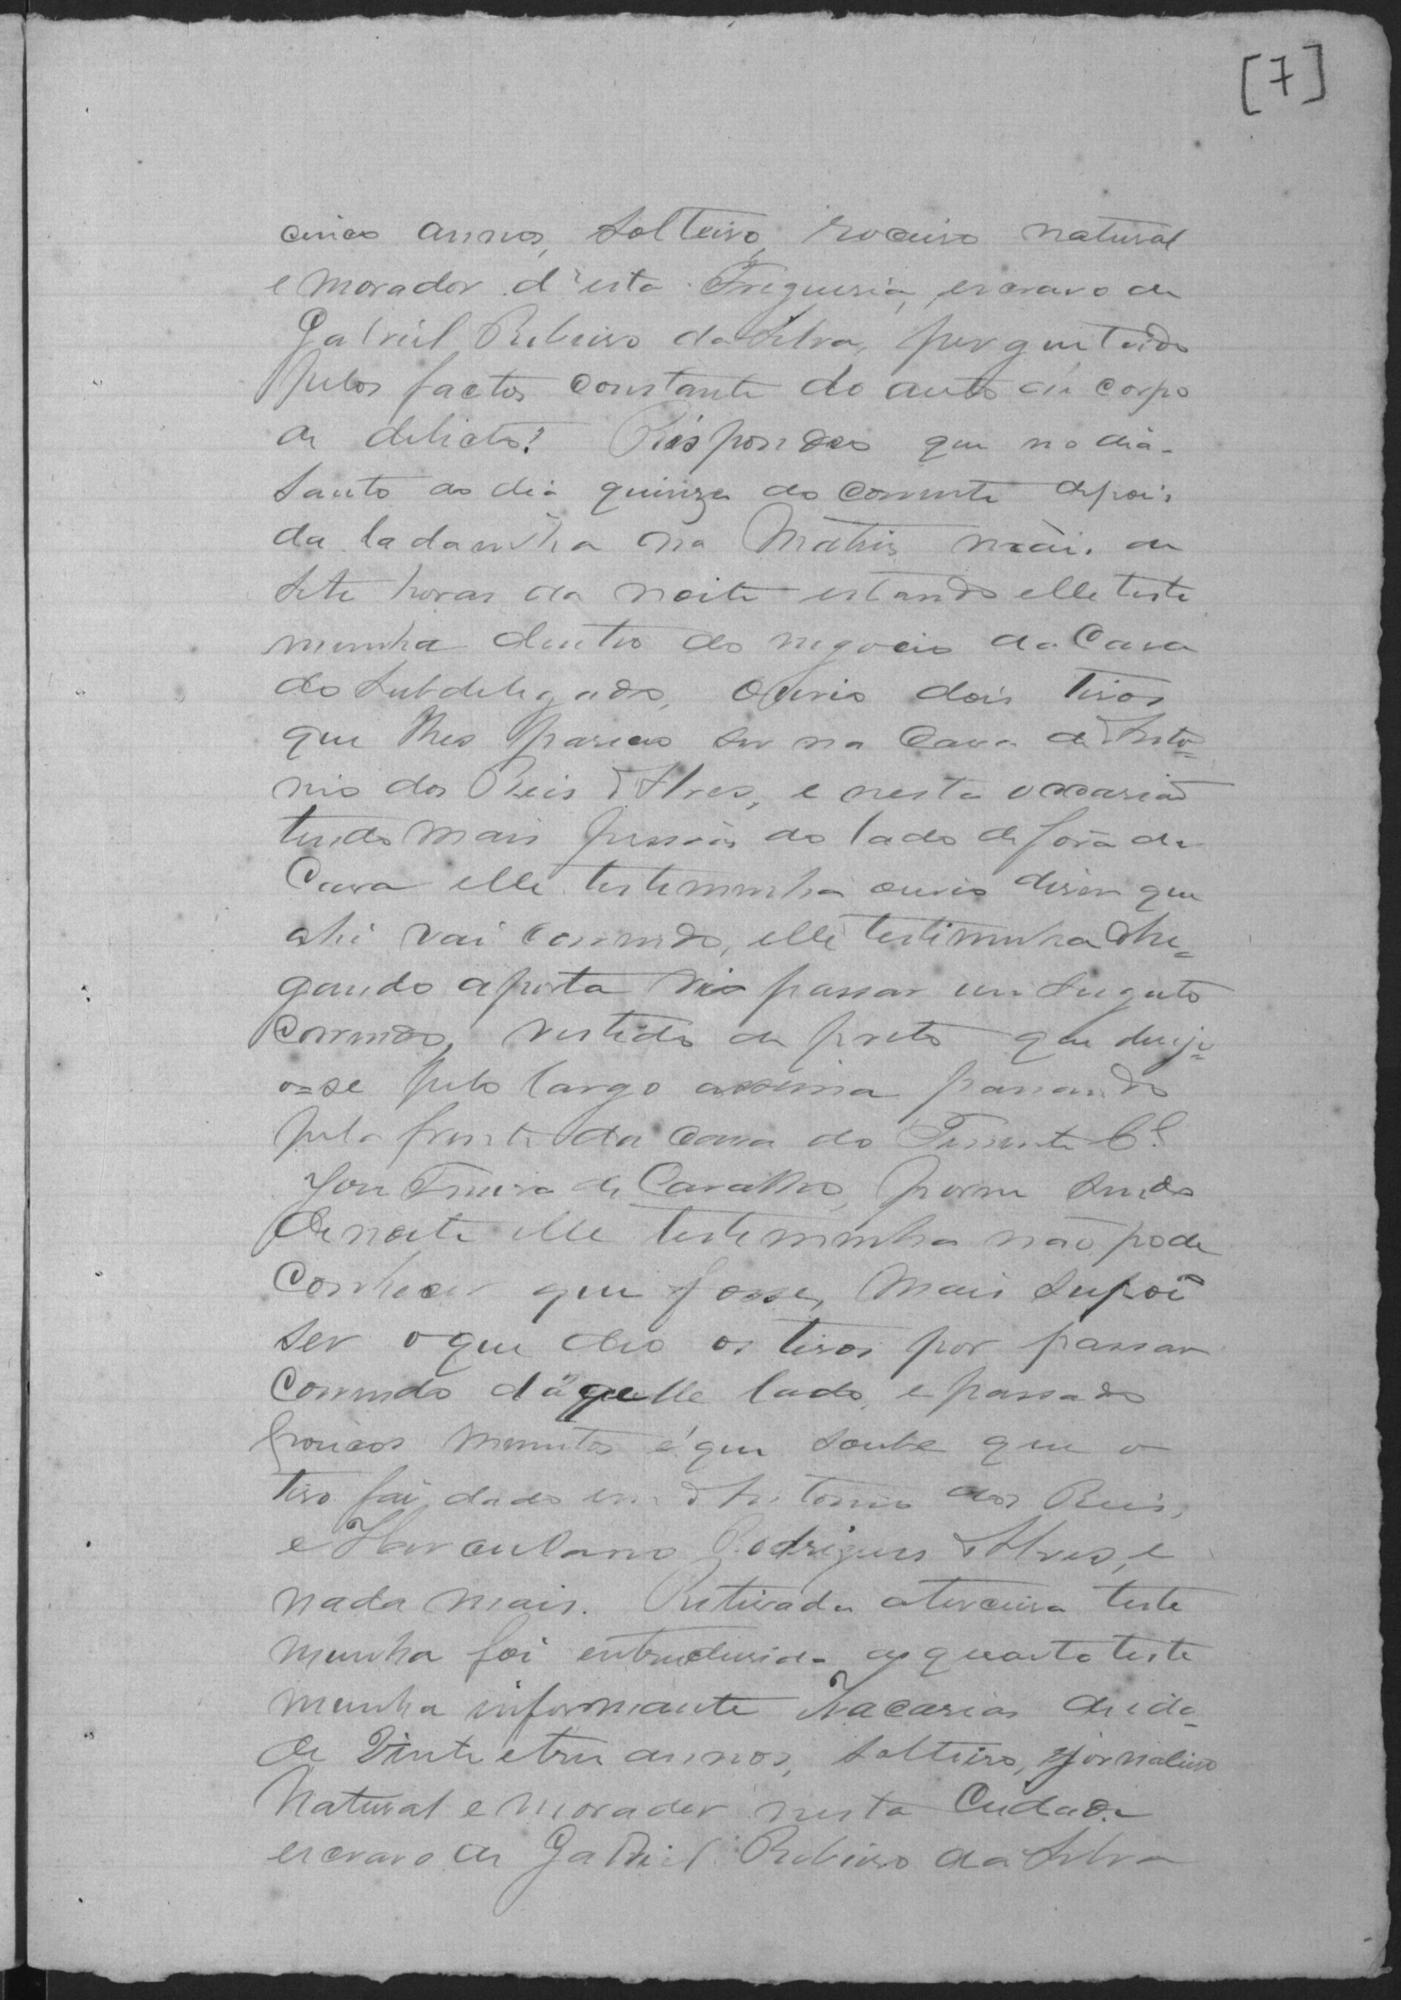 [7]
cinco annos, solteiro, roceiro natural
e morador d'esta Freguesia, escravo de
Gabriel Ribeiro da Silva, perguntado
pelos factos constante do auto de corpo
de delicto? Respondeo que no dia
santo do dia quinze do corrente depois
da ladainha na Matris mais de
sete horas da noite estando elle teste
munha dentro do negocio da Casa
do Subdelegado, ouvio dois tiros
que lhes pareceo ser na Casa de Anto=
nio dos Reis Alves, e nesta occasião
tendo mais pessoas do lado de fora da
Casa elle testemunha ouvio diser que
ahi vai correndo, elle testimunha che=
gando a porta vio passar um sugeito
correndo, vestido de preto que derigi=
o=se pelo largo assima passando
pela frente da casa do Tenente C.el
José Teixeira de Carvalho, porem sendo
de noite elle testemunha não pode
Conhecer quem fosse, mais supoi
ser o que deo os tiros por passar
Correndo d'aquelle lado, e passado
poucos menutos é que soube que o
tiro foi dado em Antonio dos Reis,
e Harculano Rodrigues Alves, e
nada mais. Retirada a terceira teste
munha foi entrodusida a quarta teste
munha informante Zacarias de ida
de Vinte e tres annos, solteiro, jornaleiro
Natural e morador nesta Cidade
escravo de Gabriel Ribeiro da Silva